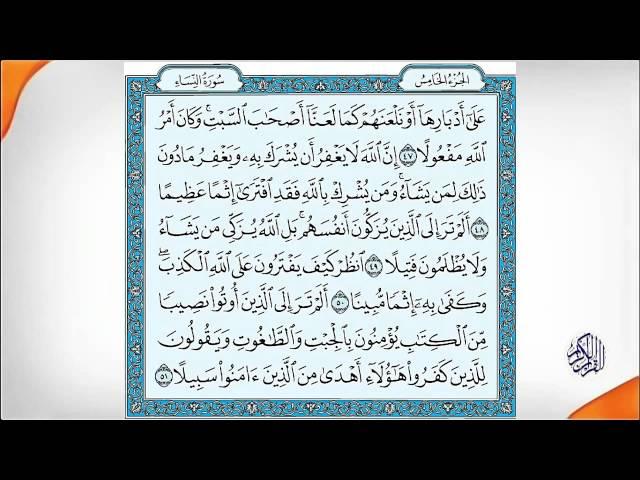 الجزء الخامس
سورة النساء
عَلَىٰٓ أَدْبَارِهَآ أَوْ نَلْعَنَهُمْ كَمَا لَعَنَّآ أَصْحَٰبَ ٱلسَّبْتِ ۚ وَكَانَ أَمْرُ
ٱللَّهِ مَفْعُولًا ٤٧ إِنَّ ٱللَّهَ لَا يَغْفِرُ أَن يُشْرَكَ بِهِۦ وَيَغْفِرُ مَا دُونَ
ذَٰلِكَ لِمَن يَشَآءُ ۚ وَمَن يُشْرِكْ بِٱللَّهِ فَقَدِ ٱفْتَرَىٰٓ إِثْمًا عَظِيمًا
٤٨ أَلَمْ تَرَ إِلَى ٱلَّذِينَ يُزَكُّونَ أَنفُسَهُم ۚ بَلِ ٱللَّهُ يُزَكِّى مَن يَشَآءُ
وَلَا يُظْلَمُونَ فَتِيلًا ٤٩ ٱنظُرْ كَيْفَ يَفْتَرُونَ عَلَى ٱللَّهِ ٱلْكَذِبَ ۖ
وَكَفَىٰ بِهِۦٓ إِثْمًا مُّبِينًا ٥٠ أَلَمْ تَرَ إِلَى ٱلَّذِينَ أُوتُوا۟ نَصِيبًا
مِّنَ ٱلْكِتَٰبِ يُؤْمِنُونَ بِٱلْجِبْتِ وَٱلطَّٰغُوتِ وَيَقُولُونَ
لِلَّذِينَ كَفَرُوا۟ هَٰٓؤُلَآءِ أَهْدَىٰ مِنَ ٱلَّذِينَ ءَامَنُوا۟ سَبِيلًا ٥١
القرآن الكريم